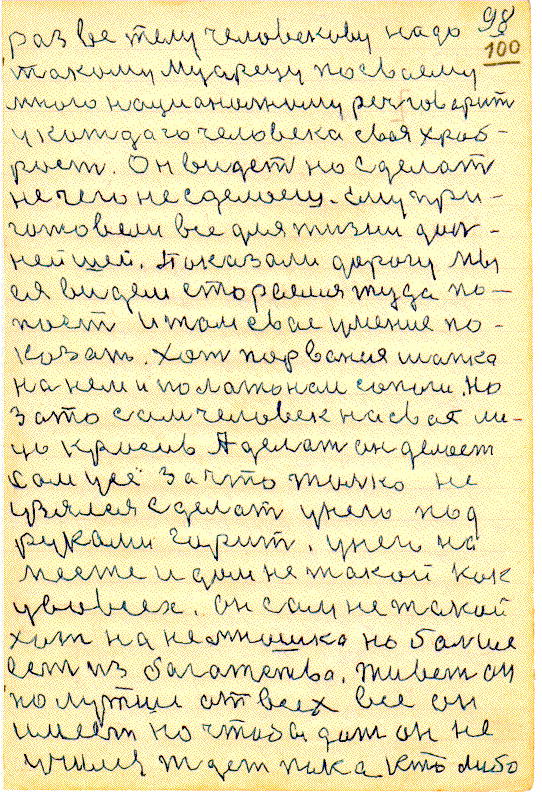 98
100
раз ве телу человекову надо
такому мудрецу по своему
много национажному реч говерит
у кождаго человека своя храб-
рост. Он видет но сделат
нечего не сделоеш. ему при-
готовели все для жизни дал-
нейшей. Показали дорогу мы
ея видем стораемя туда по-
пост и там свае умение по-
козать. Хот порваная шапка
на нем и полатонаи сопоги. Но
зато сам человек на своя ли-
цо красив А делат он делоет
сам усе за что толко не
узялся сделат у него под
руками гарит. у него на
месте и дом не такой как
у вовсех. он сам не такой
хот на немношка но балше
ест из багатства. живет он
по лутше от всех все он
имеет но чтоба дат он не
учился ждет пака кто либо